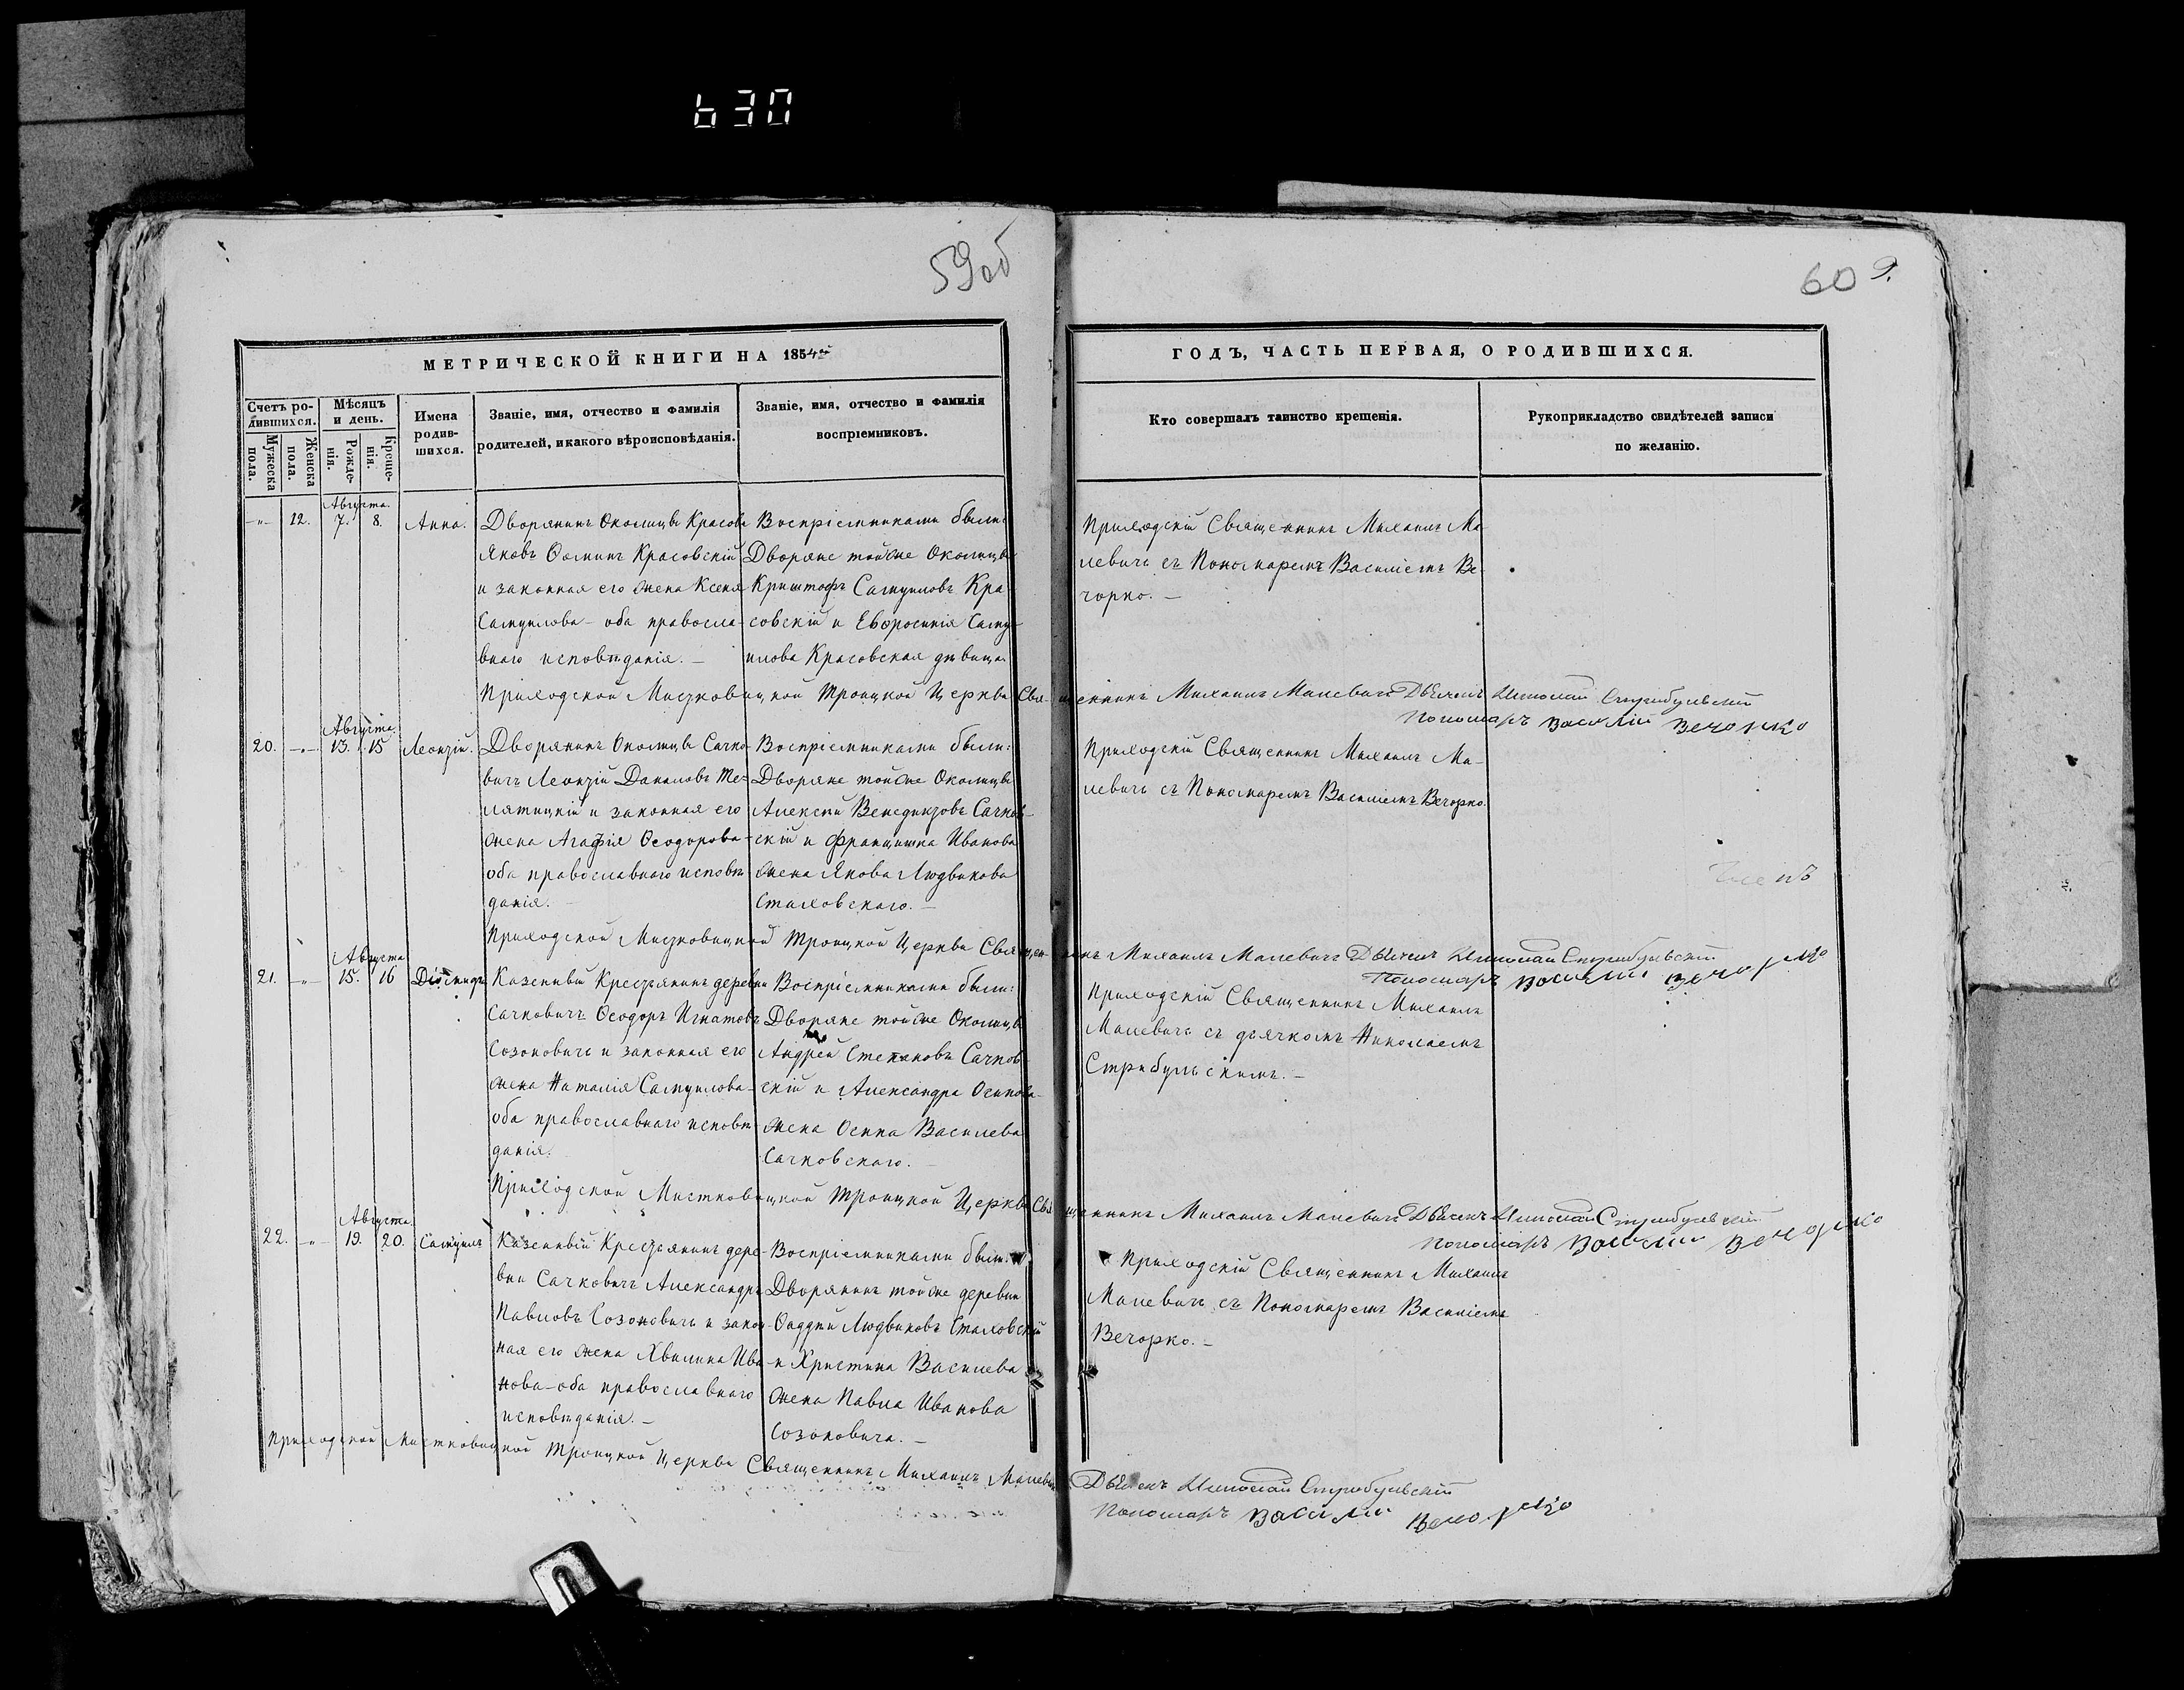 630
59об
60 9.
МЕТРИЧЕСКОЙ КНИГИ НА 1854й
ГОДЪ, ЧАСТЬ ПЕРВАЯ, О РОДИВШИХСЯ.
Счетъ ро-
дившихся.
Мѣсяцъ
и день.
Имена
родив-
шихся.
Званіе, имя, отчество и фамилія
родителей, и какого вѣроисповѣданія.
Званіе, имя, отчество и фамилія
воспріемниковъ.
Мужеска
пола.
Женска
пола.
Рожде-
нія.
Креще-
нія.
Кто совершалъ таинство крещенія.
Рукоприкладство свидѣтелей записи
по желанію.
Августа.
-"- 12. 7. 8. Анна.
Дворянинъ Околицы Красова
Яковъ Ѳоминъ Красовскій
и законная его жена Ксенія
Самуилова - оба правосла-
внаго исповѣданія. -
Воспріемниками были:
Дворяне той же Околицы
Криштофъ Самуиловъ Кра-
совскій и Евфросинія Саму-
илова Красовская дѣвица.
Приходскій Священникъ Михаилъ Ма-
левичъ съ Пономаремъ Василіемъ Ве-
чорко. -
Приходской Мистковицкой Троицкой Церкви Священникъ Михаилъ Малевичъ Дьячекъ Николай Стрибульскій
Пономарь Василій Вечорко
Августа
20. -"- 13. 15 Леонтій.
Дворянинъ Околицы Сачко-
вичъ Леонтій Даниловъ Те-
лятицкій и законная его
жена Агафія Ѳеодорова -
оба православнаго исповѣ-
данія. -
Воспріемниками были:
Дворяне той же Околицы
Алексѣй Венедиктовъ Сачков-
скій и Францишка Иванова
жена Якова Людвикова
Стаховскаго. -
Приходскій Священникъ Михаилъ Ма-
левичъ съ Пономаремъ Василіемъ Вечорко.
Приходской Мистковицкой Троицкой Церкви Священникъ Михаилъ Малевичъ Дьячекъ Николай Стрибульскій
Пономарь Василій Вечорко
Августа
21. -"- 15. 16 Діомидъ
Казенный Крестьянинъ деревни
Сачковичъ Ѳеодоръ Игнатовъ
Созоновичъ и законная его
жена Наталія Самуилова -
оба православнаго исповѣ-
данія.
Воспріемниками были:
Дворяне той же Околицы
Андрей Степановъ Сачков-
скій и Александра Осипова -
жена Осипа Василева
Сачковскаго. -
Приходскій Священникъ Михаилъ
Малевичъ съ дьячкомъ Николаемъ
Стрибульскимъ. -
Приходской Мистковицкой Троицкой Церкви Священникъ Михаилъ Малевичъ Дьячекъ Николай Стрибульскій
Пономарь Василій Вечорко
Августа
22. -"- 19. 20. Самуилъ
Казенный Крестьянинъ дере-
вни Сачковичъ Александръ
Павловъ Созоновичъ и закон-
ная его жена Хвилина Ива-
нова - оба православнаго
исповѣданія. -
Воспріемниками были:
Дворянинъ той же деревни
Ѳаддей Людвиковъ Стаховскій
и Христина Василева
жена Павла Иванова
Созоновича. -
Приходскій Священникъ Михаилъ
Малевичъ съ Пономаремъ Василіемъ
Вечорко. -
Приходской Мистковицкой Троицкой Церкви Священникъ Михаилъ Малевичъ Дьячекъ Николай Стрибульскій
Пономарь Василій Вечорко